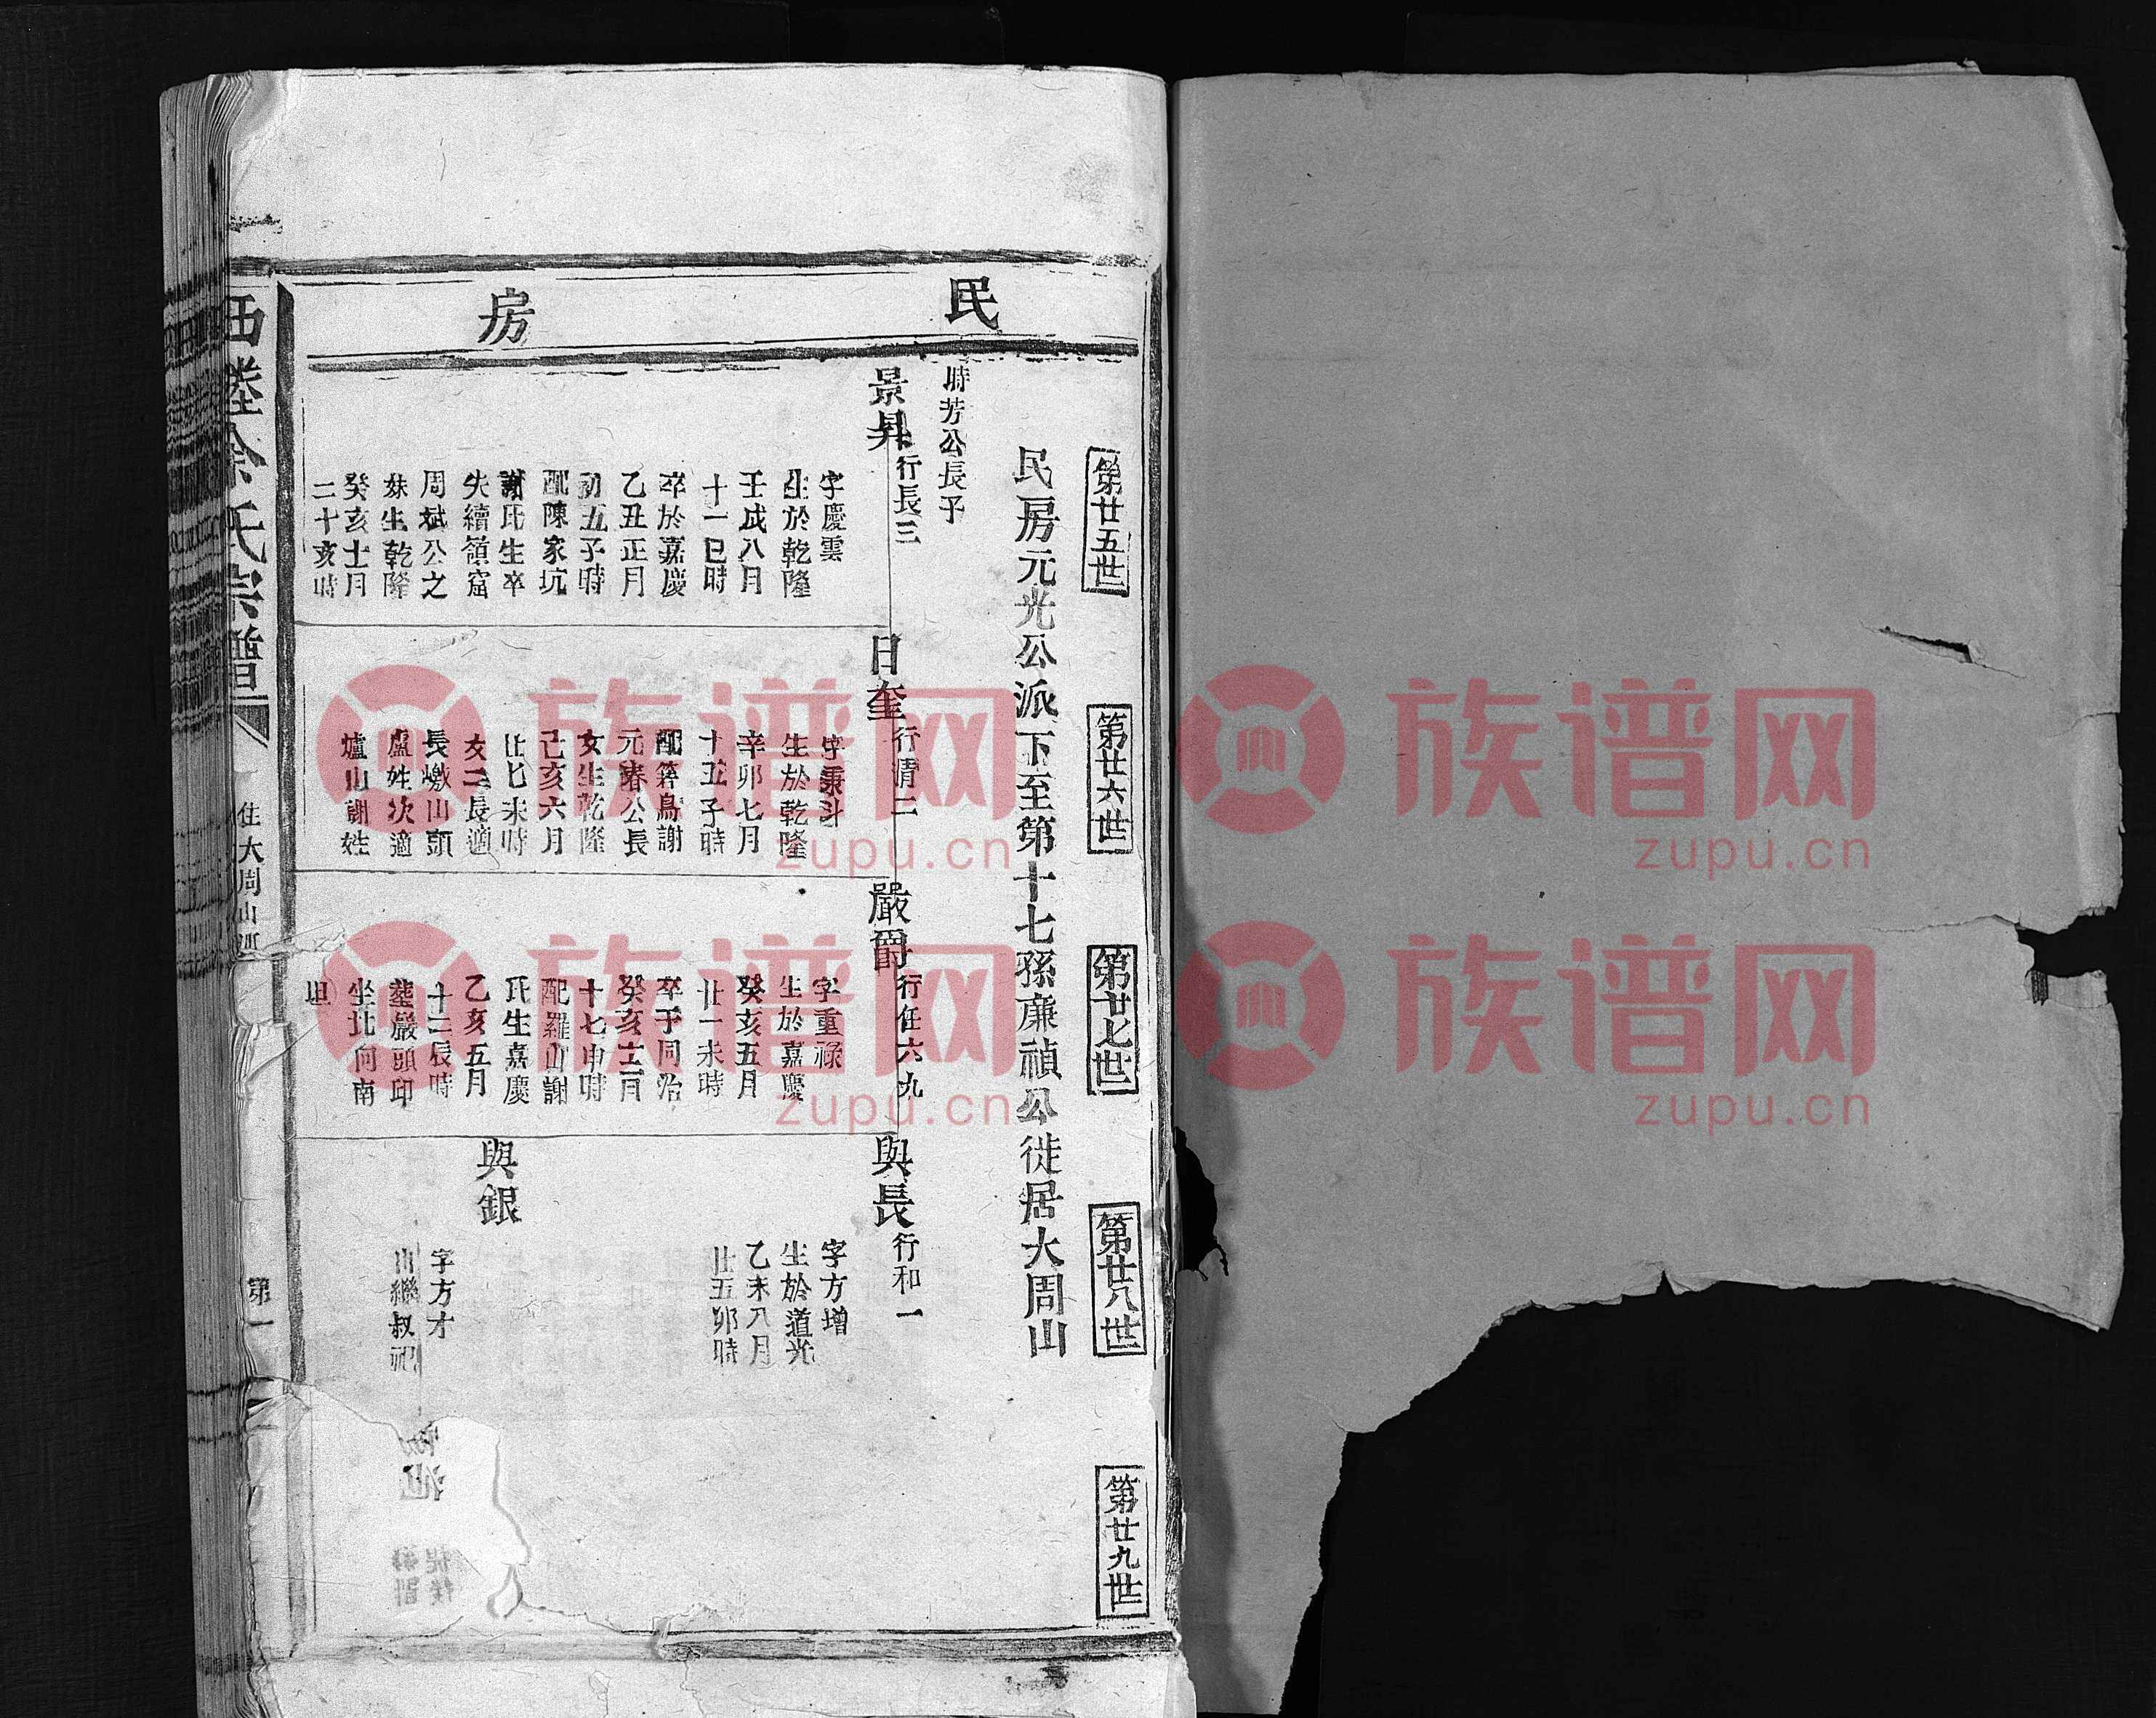 民房
第廿五世
第廿六世
第廿七世
第廿八世
第廿九世
民房元光公派下至第十七孫廉禎公徙居大周山
時芳公長子
景昇
行長三
字慶雲
生於乾隆
壬戌八月
十一巳時
卒於嘉慶
乙丑正月
初五子時
配陳家坑
謝氏生卒
失續嶺窟
周斌公之
妹生乾隆
癸亥十月
二十亥時
日奎
行清二
字秉斗
生於乾隆
辛卯七月
十五子時
配箬鳥謝
元春公長
女生乾隆
己亥六月
廿七未時
女二長適
長墩山頭
盧姓次適
爐山謝姓
嚴爵
行任六九
字重祿
生於嘉慶
癸亥五月
廿一未時
卒于同治
癸亥十二月
十七申時
配羅山謝
氏生嘉慶
乙亥五月
十二辰時
塟嚴頭印
坐北向南
與長
行和一
字方增
生於道光
乙未八月
廿五卯時
與銀
字方才
出繼叔祀
西塍余氏宗譜
住大周山
第一
族谱网
zupu.cn
族谱网
zupu.cn
族谱网
zupu.cn
族谱网
zupu.cn